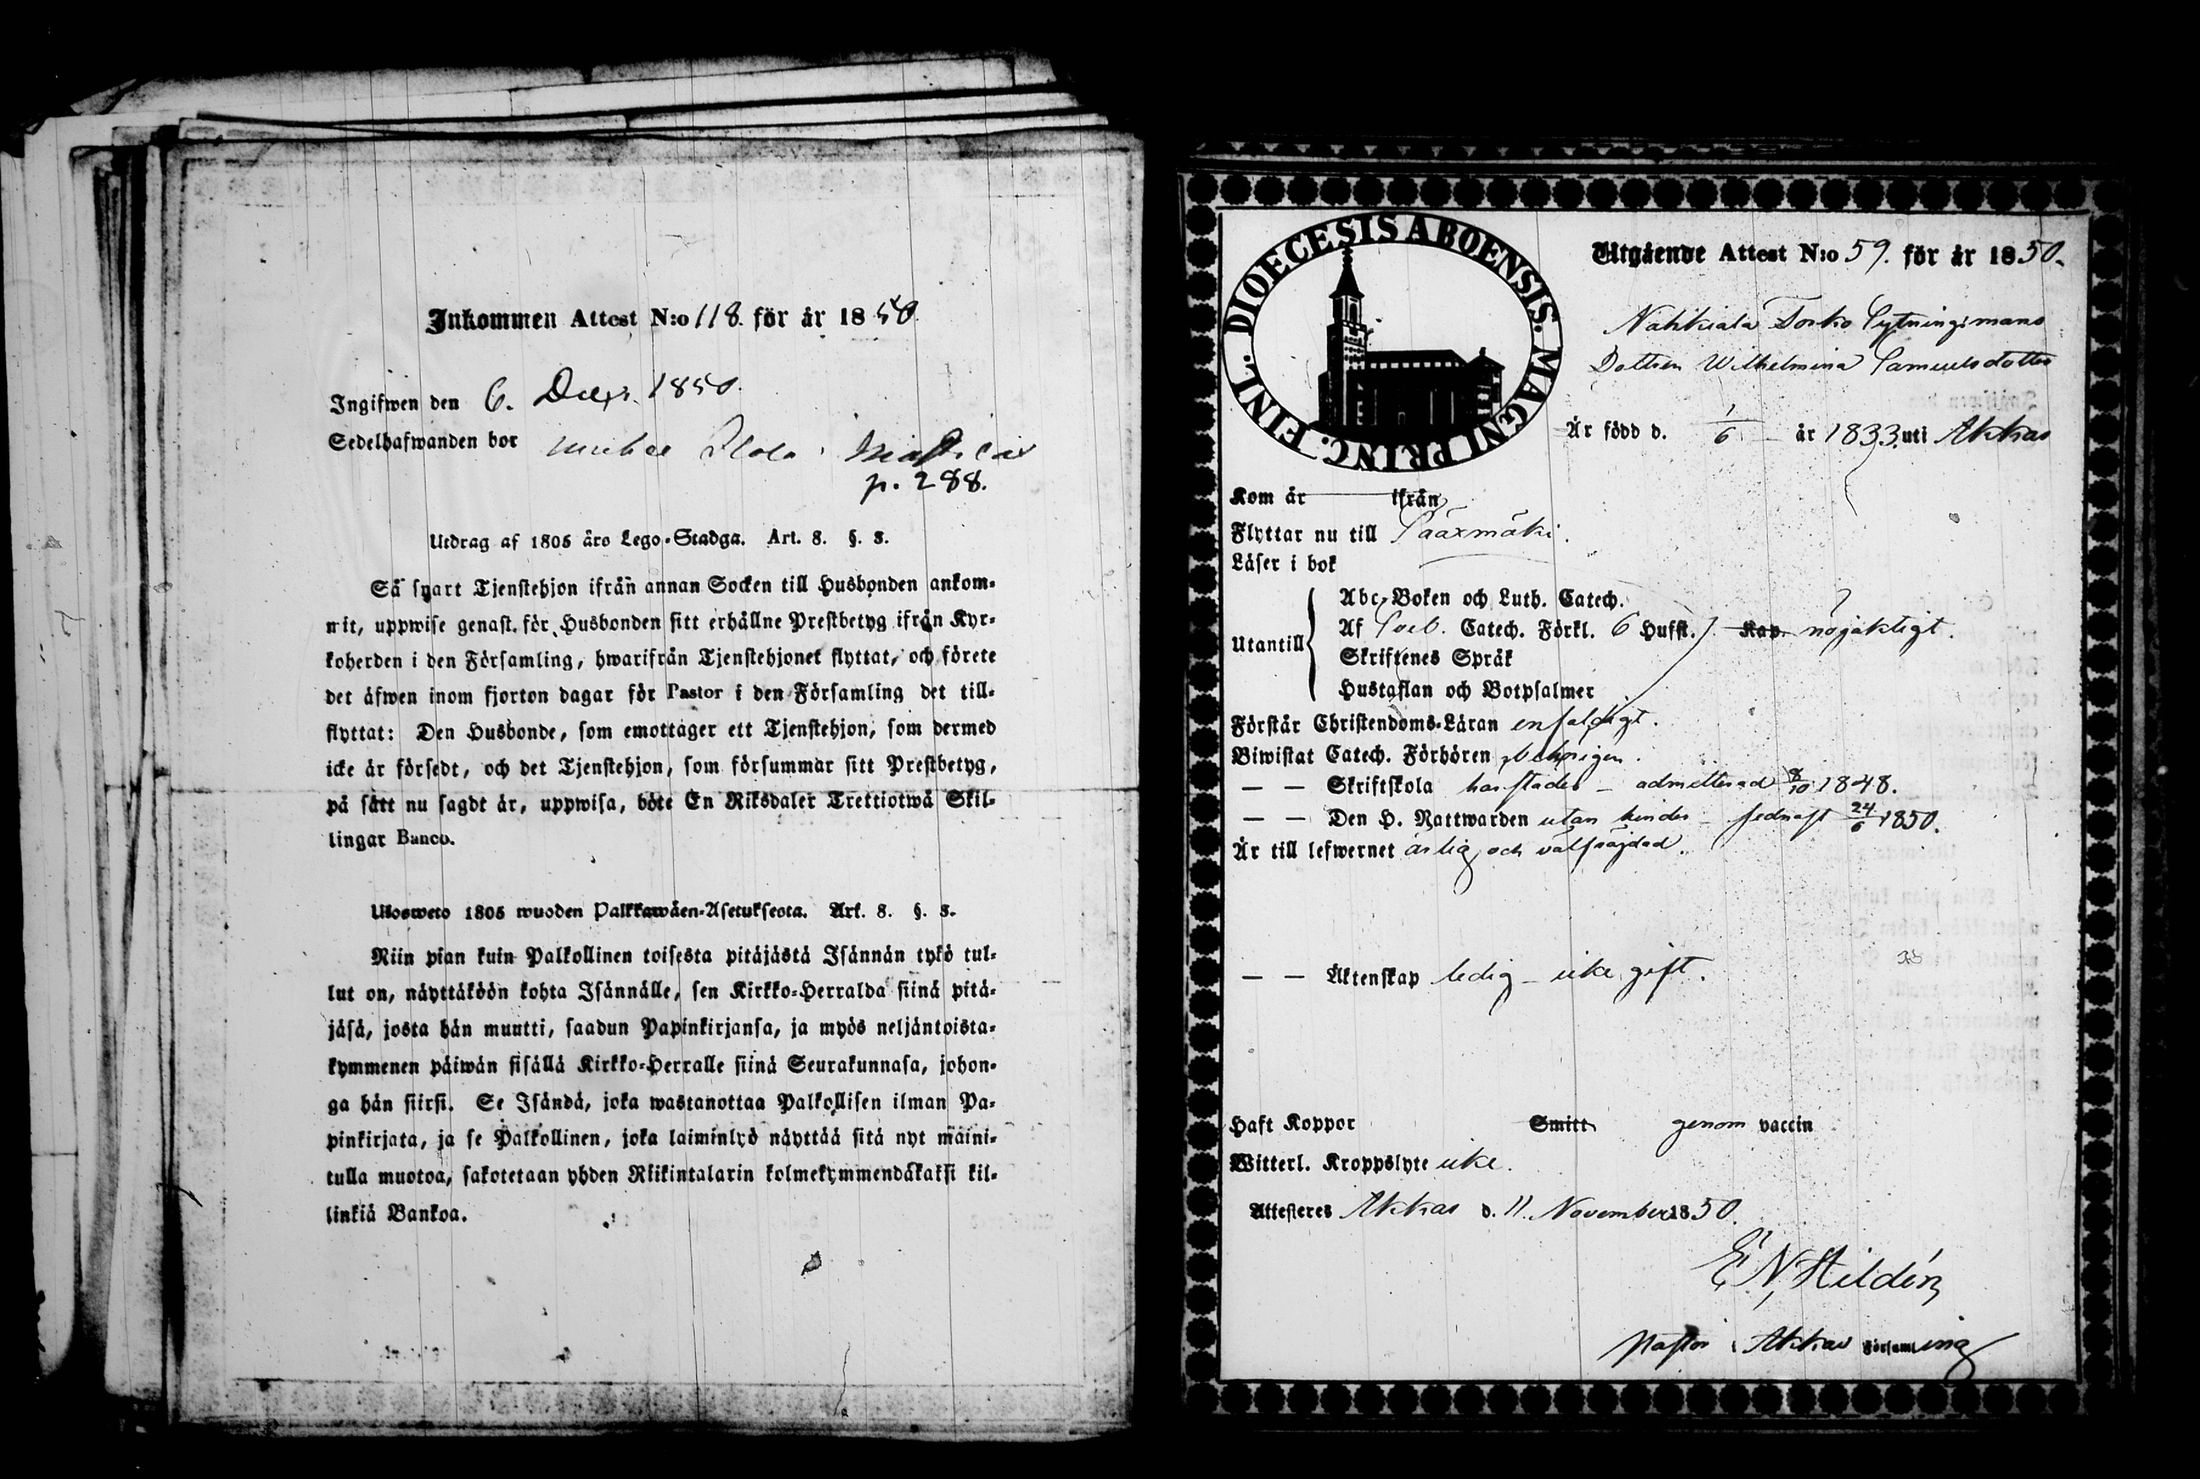 Inkommen Attest N:o 118. för år 1850
Ingifwen den 6. Decbr. 1850.
Sedelhafwanden bor
p. 288.
Utdrag af 1805 års Lego-Stadga. Art. 8. §. 8.
Så snart Tjenstehjon ifrån annan Socken till Husbonden ankom-
mit, uppwise genast för Husbonden sitt erhållne Prestbetyg ifrån Kyr-
koherden i den Församling, hwarifrån Tjenstehjonet flyttat, och förete
det äfwen inom fjorton dagar för Pastor i den Församling det till-
flyttat: Den Husbonde, som emottager ett Tjenstehjon, som dermed
icke är försedt, och det Tjenstehjon, som försummar sitt Prestbetyg,
på sätt nu sagdt är, uppwisa, böte En Riksdaler Trettiotwå Skil-
lingar Banco.
Ulosweto 1805 wuoden Palkkawäen-Asetuksesta. Art. 8. §. 8.
Niin pian kuin Palkollinen toisesta pitäjästä Isännän tykö tul-
lut on, näyttäköön kohta Isännälle, sen Kirkko-Herralda siinä pitä-
jäsä, josta hän muutti, saadun Papinkirjansa, ja myös neljäntoista-
kymmenen päiwän sisällä Kirkko-Herralle siinä Seurakunnasa, johon-
ga hän siirsi. Se Isändä, joka wastanottaa Palkollisen ilman Pa-
pinkirjata, ja se Palkollinen, joka laiminlyö näyttää sitä nyt maini-
tulla muotoa, sakotetaan yhden Riikintalarin kolmekymmendäkaksi kil-
linkiä Bankoa.
FINL. DIOECESIS ABOENSIS. MAGNI PRINC.
Utgående Attest N:o 59. för år 1850.
Nahkiala Torko Sytningsmans
Dottren Wilhelmina Samuelsdotter
Är född d. 1/6 år 1833. uti Akkas
Kom år — ifrån
Flyttar nu till Sääxmäki.
Läser i bok
Utantill
Abc-Boken och Luth. Catech.
Af Sveb. Catech. Förkl. 6 Hufst. Kap. nöjaktigt.
Skriftenes Språk
Hustaflan och Botpsalmer
Förstår Christendoms-Läran enfaldigt.
Biwistat Catech. Förhören behörigen.
— — Skriftskola harstädes – admitterad 8/10 1848.
— — Den H. Nattwarden utan hinder – sednast 24/6 1850.
Är till lefwernet ärlig och välfrägdad.
— — Äktenskap ledig – icke gift.
Haft Koppor Smitt genom vaccin
Witterl. Kroppslyte icke.
Attesteres Akkas d. 11 November 1850.
E N Hildén
Pastor i Akkas Församling